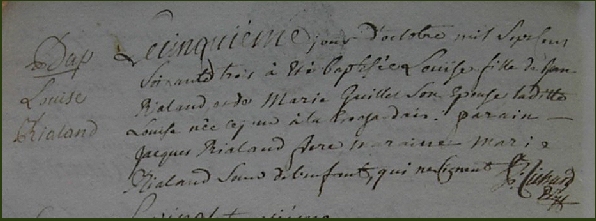 Bap
Louise
Rialand
Le cinquième jour d'octobre mil sept cent
soixante trois à été baptisée Louise fille de Jean
Rialand et de Marie Guillet son épouse laditte
Louise née ce jour à la parain
Jacques Rialand frere maraine Marie
Rialand Sœur de l'enfant, qui ne signent